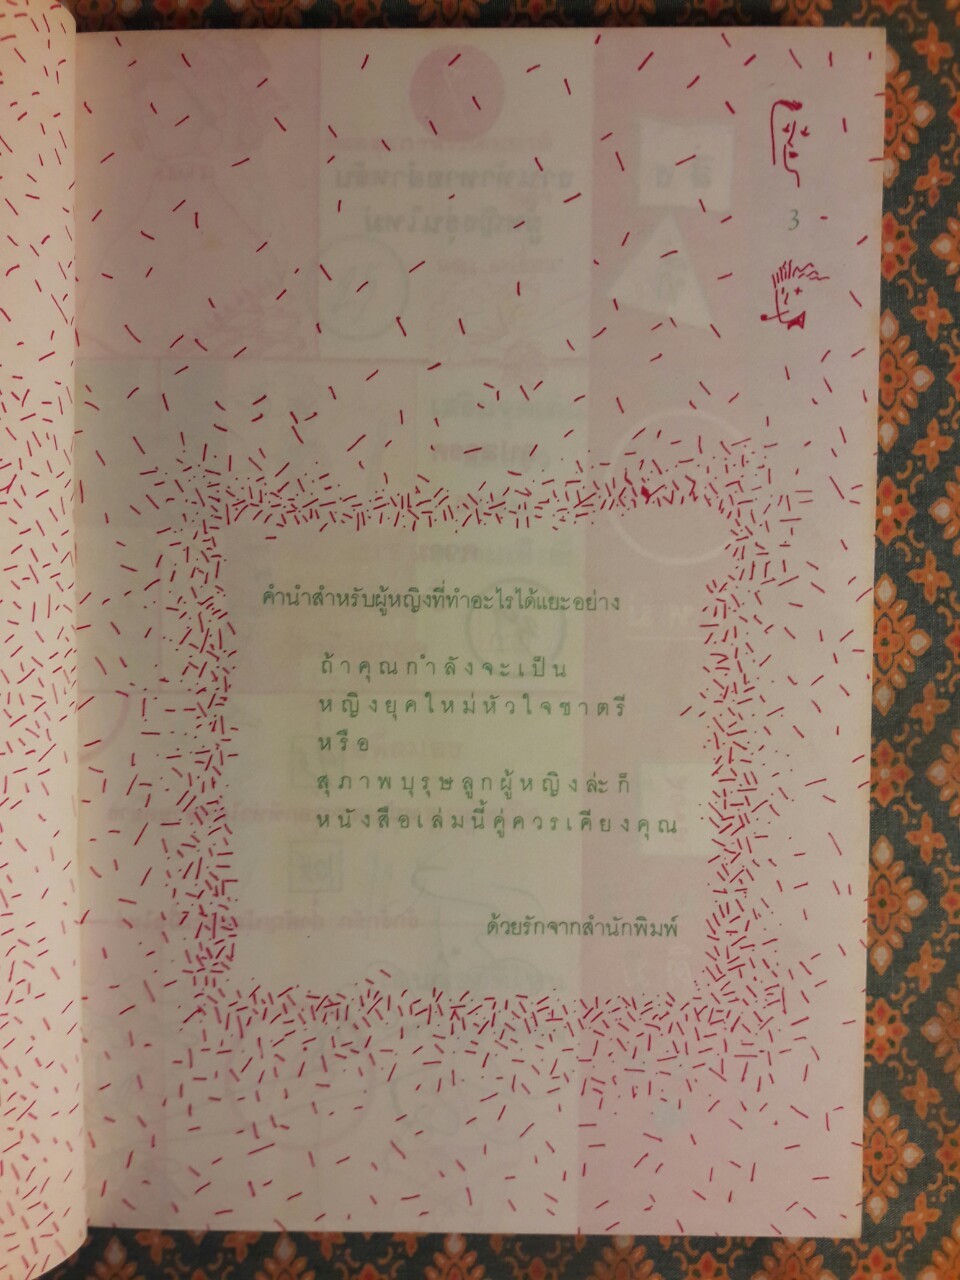 3
คำนำสำหรับผู้หญิงที่ทำอะไรได้แยะอย่าง
ถ้าคุณกำลังจะเป็น
หญิงยุคใหม่หัวใจชาตรี
หรือ
สุภาพบุรุษลูกผู้หญิงล่ะก็
หนังสือเล่มนี้คู่ควรเคียงคุณ
ด้วยรักจากสำนักพิมพ์